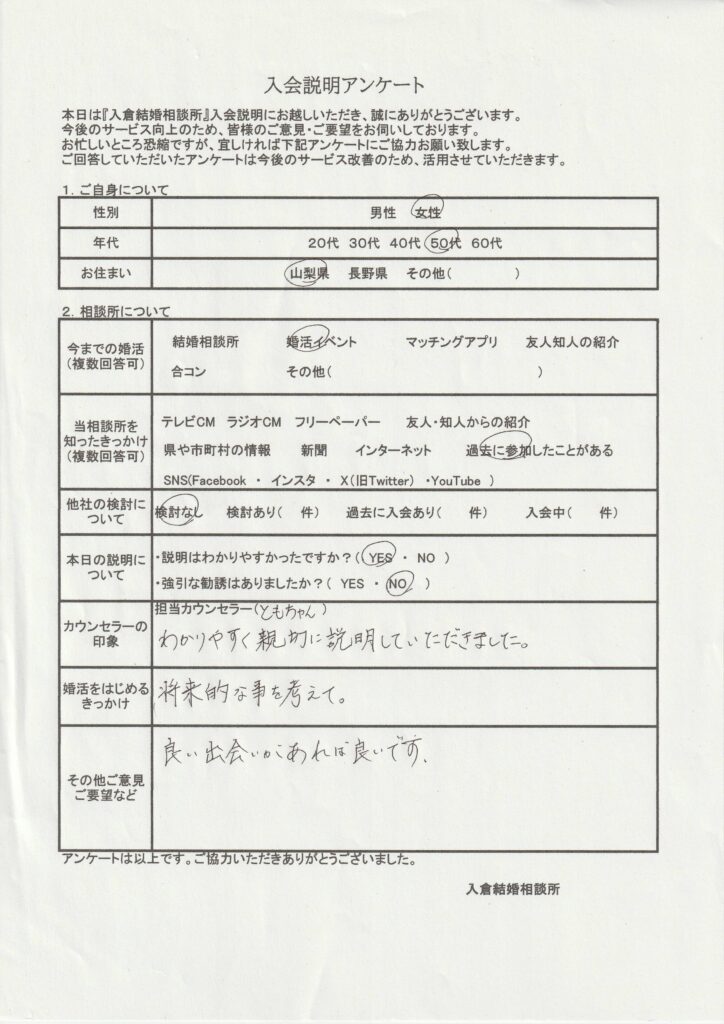 入会説明アンケート
本日は『入倉結婚相談所』入会説明にお越しいただき、誠にありがとうございます。
今後のサービス向上のため、皆様のご意見・ご要望をお伺いしております。
お忙しいところ恐縮ですが、宜しければ下記アンケートにご協力お願い致します。
ご回答していただいたアンケートは今後のサービス改善のため、活用させていただきます。
1. ご自身について
性別 男性 女性
年代 20代 30代 40代 50代 60代
お住まい 山梨県 長野県 その他( )
2. 相談所について
今までの婚活
(複数回答可)
結婚相談所 婚活イベント マッチングアプリ 友人知人の紹介
合コン その他( )
当相談所を
知ったきっかけ
(複数回答可)
テレビCM ラジオCM フリーペーパー 友人・知人からの紹介
県や市町村の情報 新聞 インターネット 過去に参加したことがある
SNS(Facebook ・ インスタ ・ X(旧Twitter) ・YouTube )
他社の検討に
ついて
検討なし 検討あり( 件) 過去に入会あり( 件) 入会中( 件)
本日の説明に
ついて
・説明はわかりやすかったですか?( YES ・ NO )
・強引な勧誘はありましたか?( YES ・ NO )
カウンセラーの
印象
担当カウンセラー(ともちゃん)
わかりやすく親切に説明していただきました。
婚活をはじめる
きっかけ
将来的な事を考えて。
その他ご意見
ご要望など
良い出会いがあれば良いです、
アンケートは以上です。ご協力いただきありがとうございました。
入倉結婚相談所